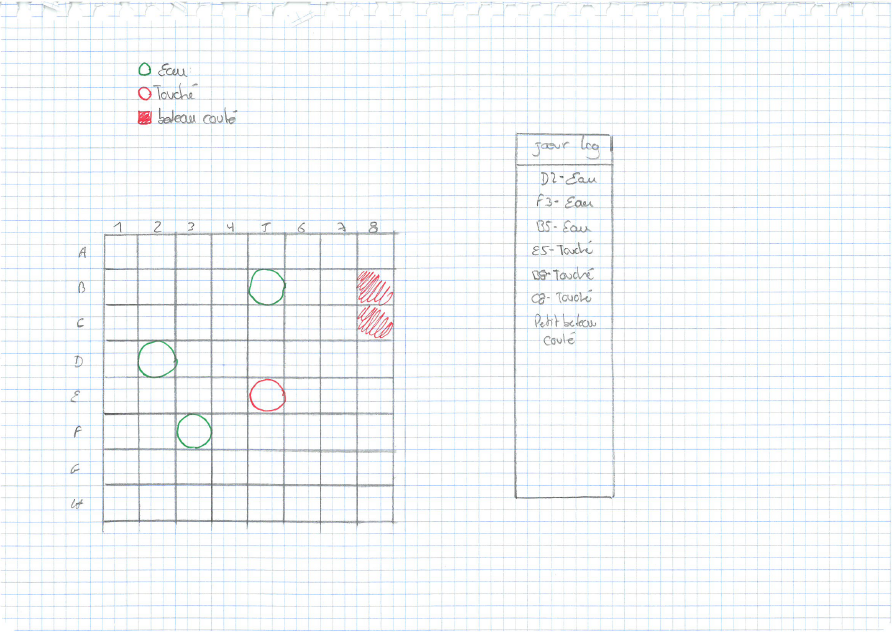 Eau
Touché
bateau coulé
joeur log
1 2 3 4 5 6 7 8
A
B
C
D
E
F
G
H
D2-Eau
F3-Eau
B5-Eau
E5-Touché
B8-Touché
C8-Touché
Petit bateau
coulé